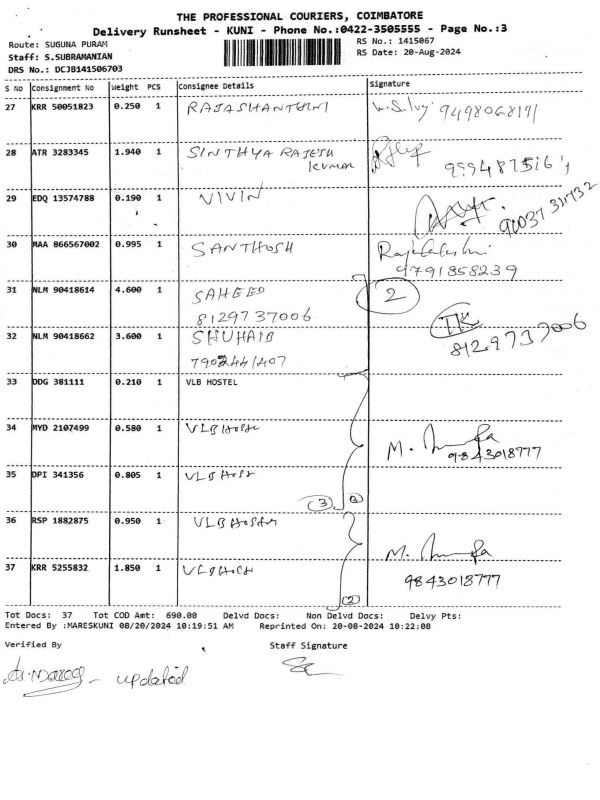 THE PROFESSIONAL COURIERS, COIMBATORE
Delivery Runsheet - KUNI - Phone No.:0422-3505555 - Page No.:3
Route: SUGUNA PURAM RS No.: 1415067
Staff: S.SUBRAMANIAN RS Date: 20-Aug-2024
DRS No.: DCJB141506703
S No Consignment No Weight PCS Consignee Details Signature
27 KRR 50051823 0.250 1 RAJASHANTHINI 9498068171
28 ATR 3283345 1.940 1 SINTHYA RAJESH
KUMAR
29 EDQ 13574788 0.190 1 VIVIN
30 MAA 866567002 0.995 1 SANTHOSH
9791858239
31 NLM 90418614 4.600 1 SAHEED 2
8129737006
32 NLM 90418662 3.600 1 SHUHAIB TK
7902441407 8129737006
33 DDG 381111 0.210 1 VLB HOSTEL
34 MYD 2107499 0.580 1 VLB M.
9843018777
35 DPI 341356 0.805 1 VLB
3
36 RSP 1882875 0.950 1 VLB M.
37 KRR 5255832 1.850 1 VLB 9843018777
2
Tot Docs: 37 Tot COD Amt: 690.00 Delvd Docs: Non Delvd Docs: Delvy Pts:
Entered By :MARESKUNI 08/20/2024 10:19:51 AM Reprinted On: 20-08-2024 10:22:08
Verified By Staff Signature
updated